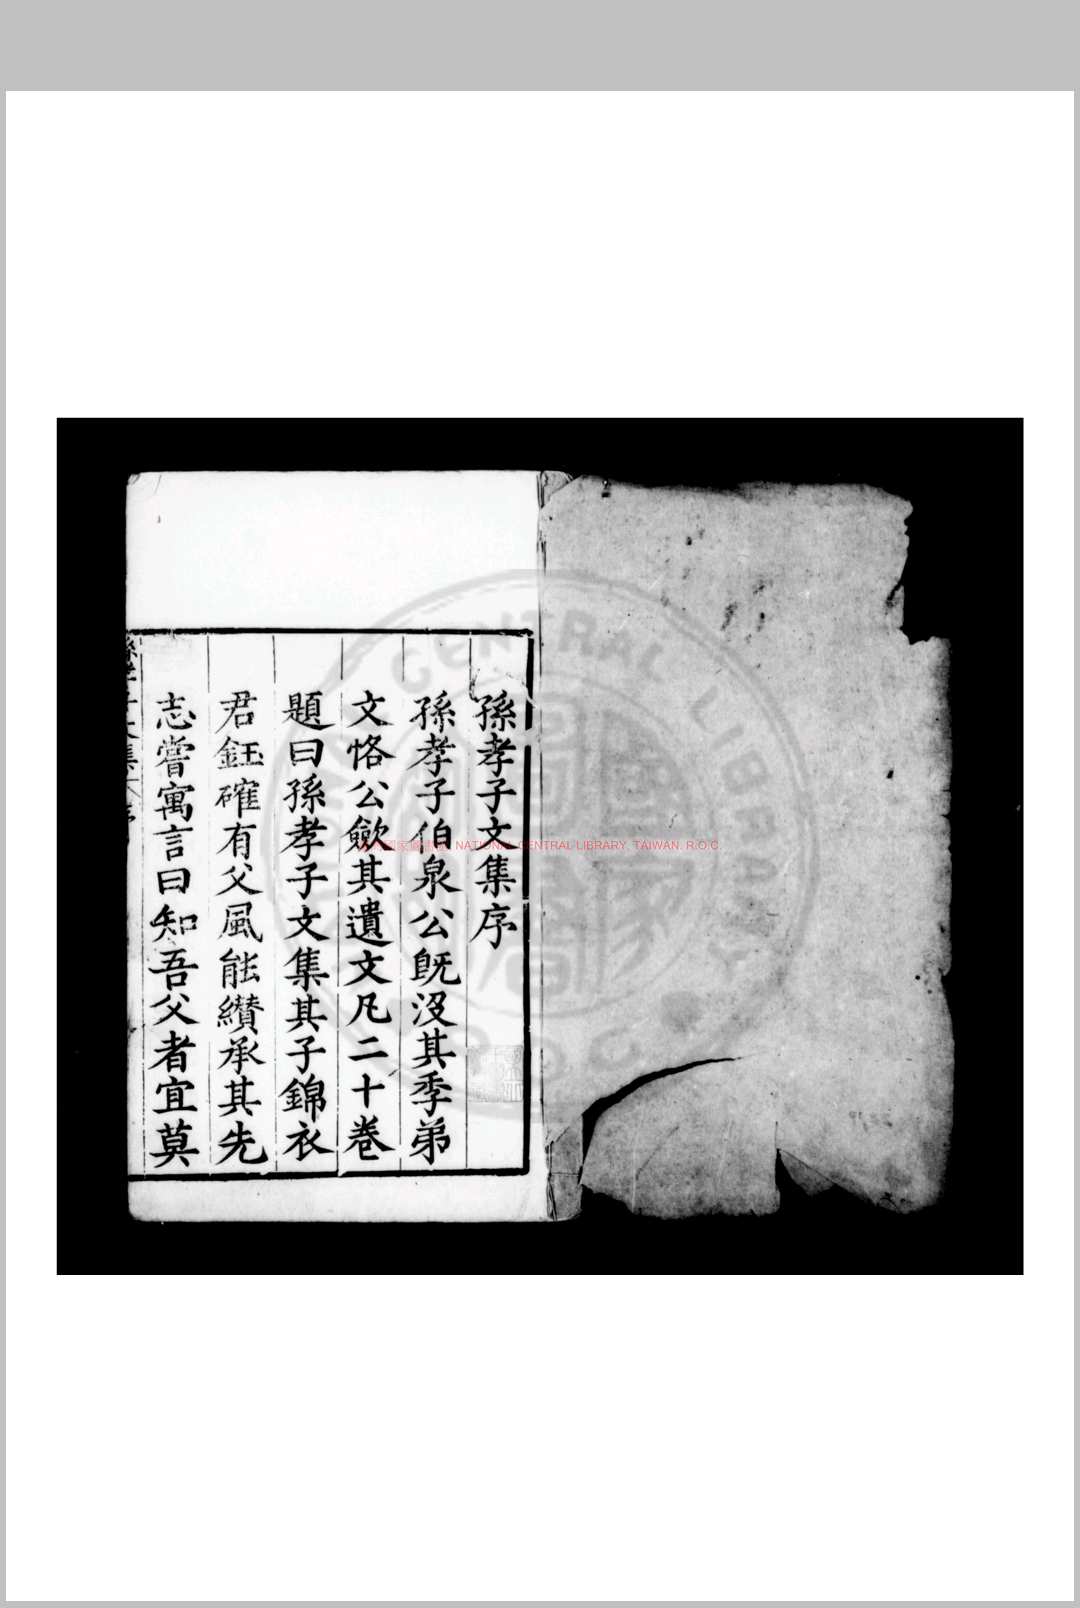 孫孝子文集序
孫孝子伯泉公旣沒其季弟
文恪公歛其遺文凡二十卷
題曰孫孝子文集其子錦衣
君鈺確有父風能纘承其先
志嘗寓言曰知吾父者宜莫
孫孝子文集 序
國家圖書館 NATIONAL CENTRAL LIBRARY, TAIWAN. R.O.C
CENTRAL LIBRARY